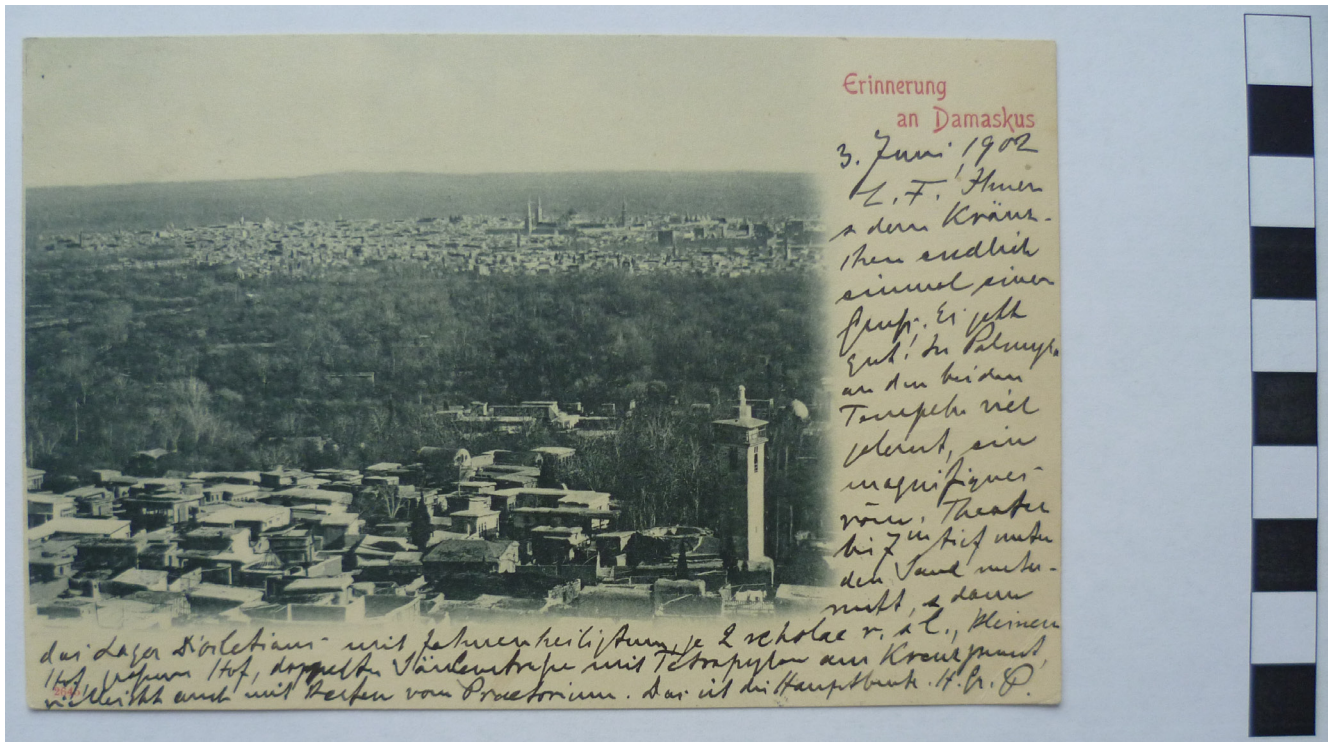 Erinnerung
an Damaskus
3. Juni 1902
L. F.! Ihnen
u dem Kränz-
chen endlich
einmal einen
Gruß. Es geht
gut! In Palmyra
an den beiden
Tempeln viel
gelernt, ein
magnifiques
röm. Theater
bis 7 m tief unter
den Sand unter-
sucht, u dann
das Lager Diocletians mit Fahnenheiligtum, je 2 scholae r. u l., kleinem
Hof, großem Hof, doppelter Säulenstraße mit Tetrapylon am Kreuzpunkt,
vielleicht auch mit Resten vom Praetorium. Das ist die Hauptbeute. H. Gr. P.